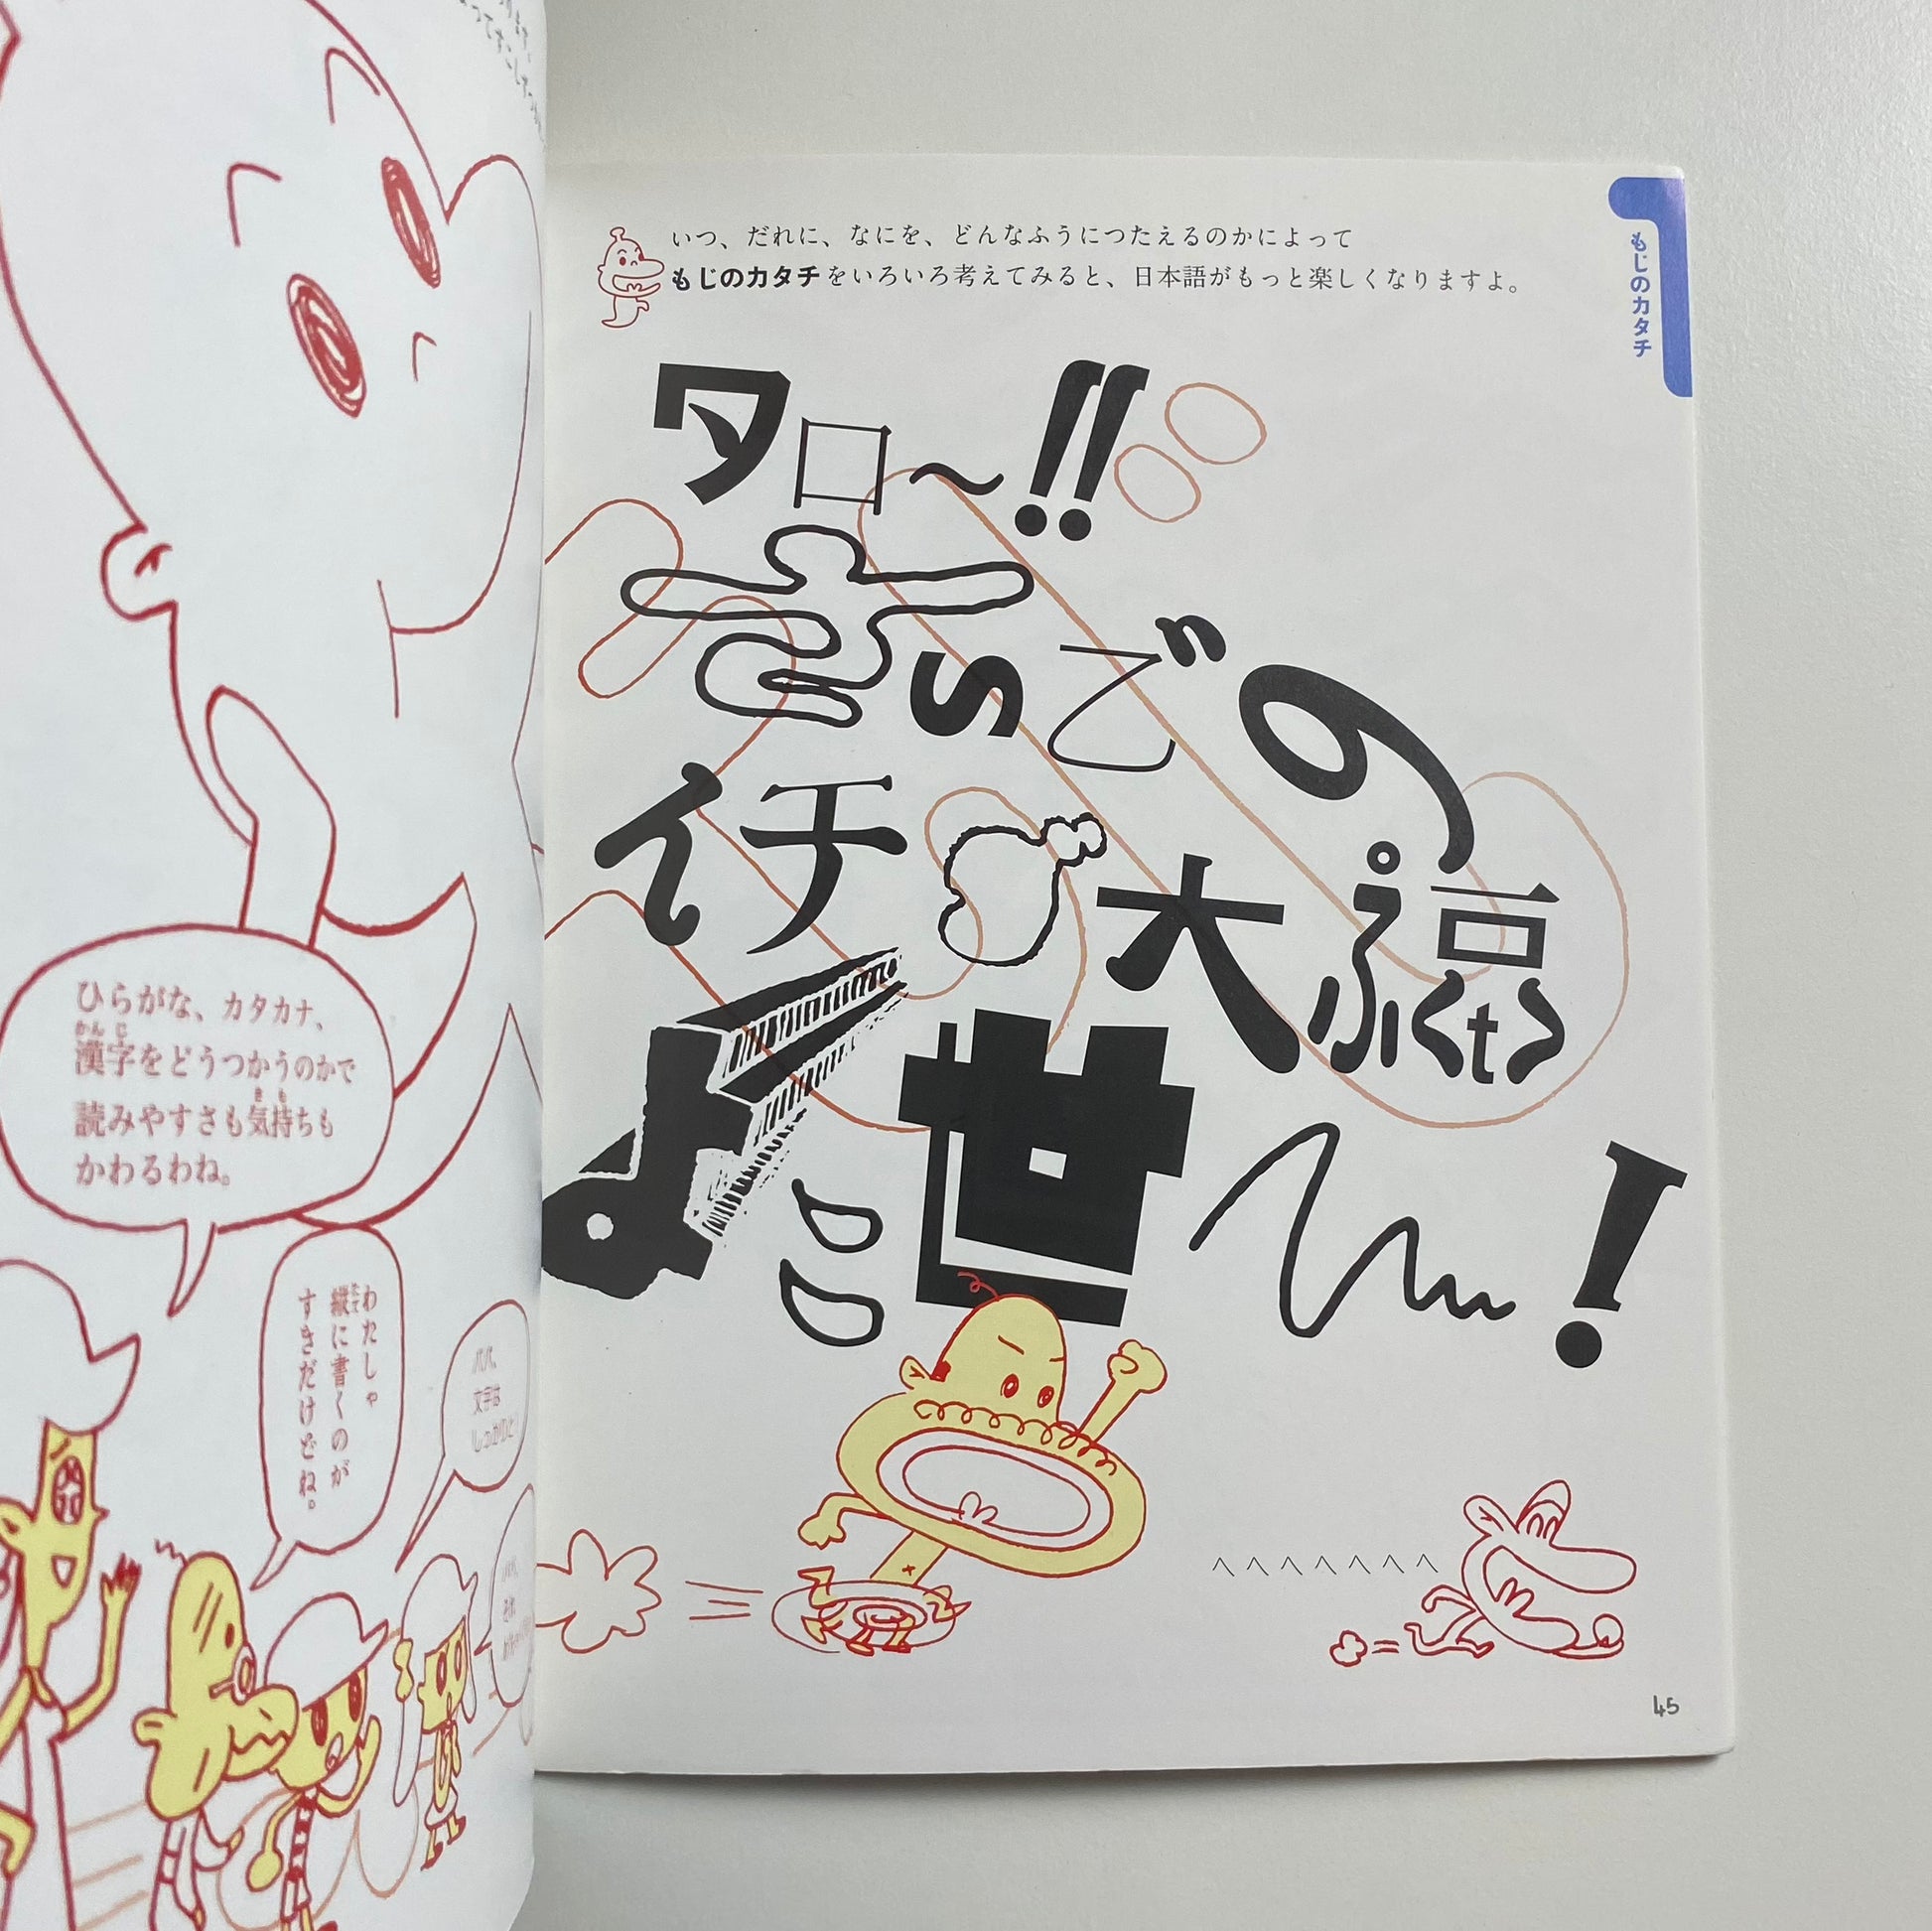 ひらがな、カタカナ、
漢字をどうつかうのかで
かんじ
読みやすさも気持ちも
きも
かわるわね。
わたしゃ
縦に書くのが
たて
すきだけどね。
パパ、
文字は
しっかりと
いつ、だれに、なにを、どんなふうにつたえるのかによって
もじのカタチをいろいろ考えてみると、日本語がもっと楽しくなりますよ。
もじのカタチ
タロ〜!!
いでの
イチゴ大
よこ世〜!
へへへへへへへ
45